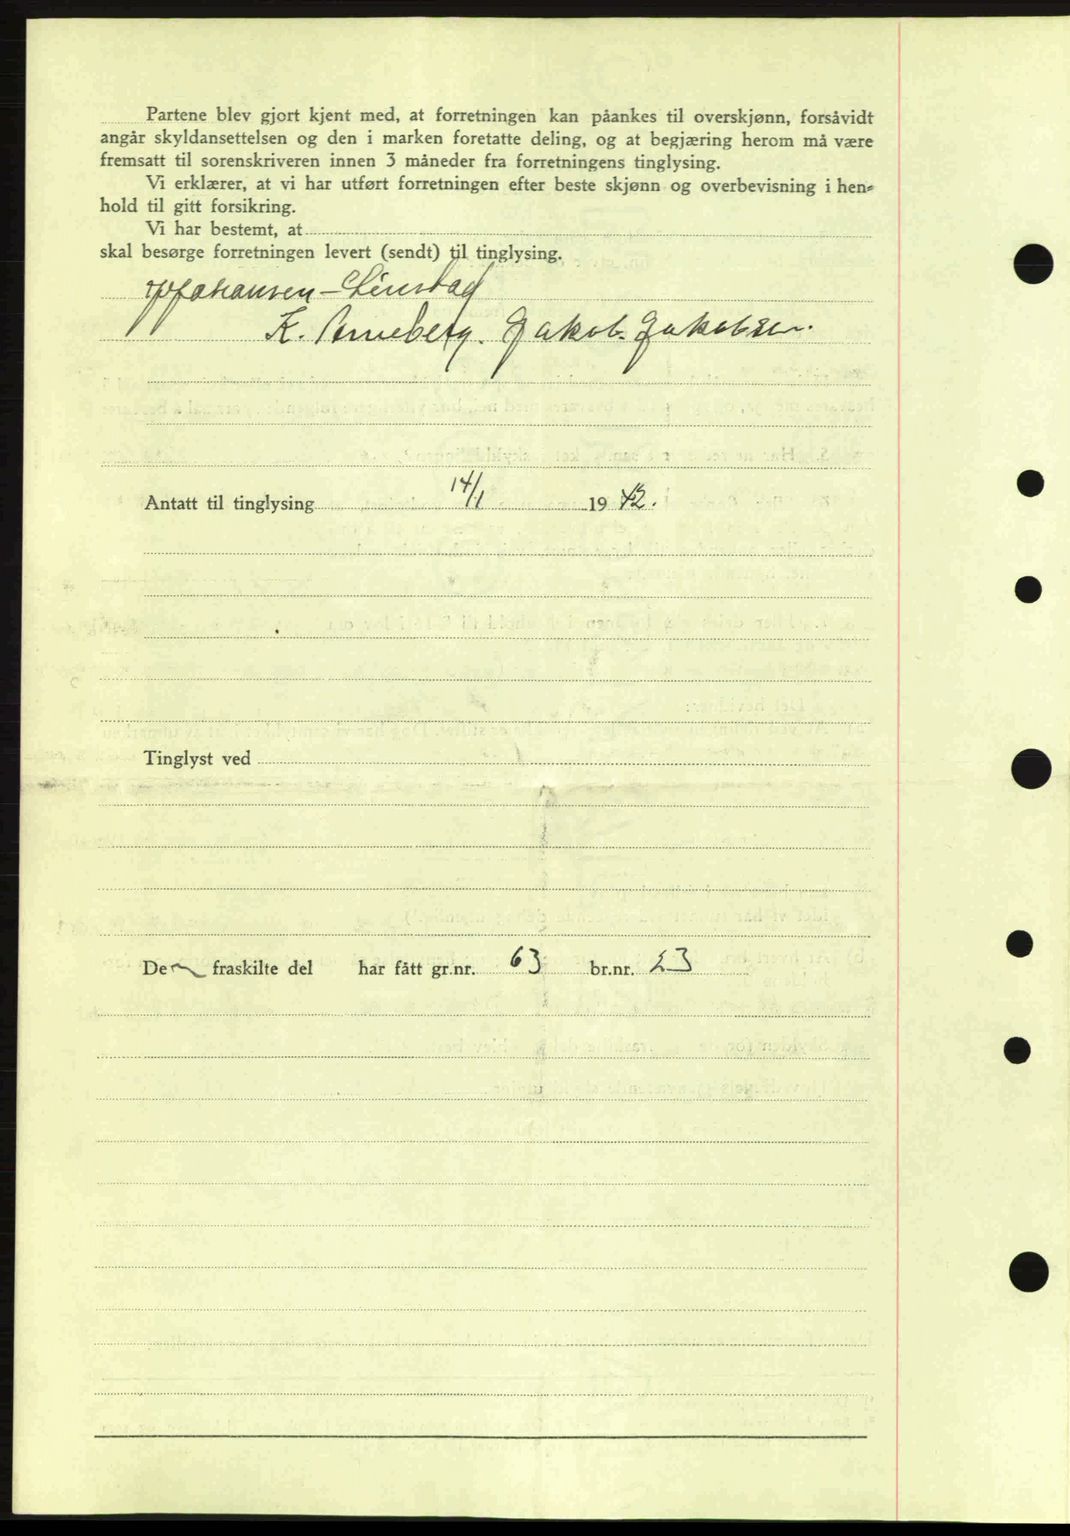 Partene blev gjort kjent med, at forretningen kan påankes til overskjønn, forsåvidt
angår skyldansettelsen og den i marken foretatte deling, og at begjæring herom må være
fremsatt til sorenskriveren innen 3 måneder fra forretningens tinglysing.
Vi erklærer, at vi har utført forretningen efter beste skjønn og overbevisning i hen-
hold til gitt forsikring.
Vi har bestemt, at
skal besørge forretningen levert (sendt) til tinglysing.
K. Arneberg. Jakob Jakobsen.
Antatt til tinglysing 14/1 1942.
Tinglyst ved
Den fraskilte del har fått gr.nr. 63 br.nr. 23